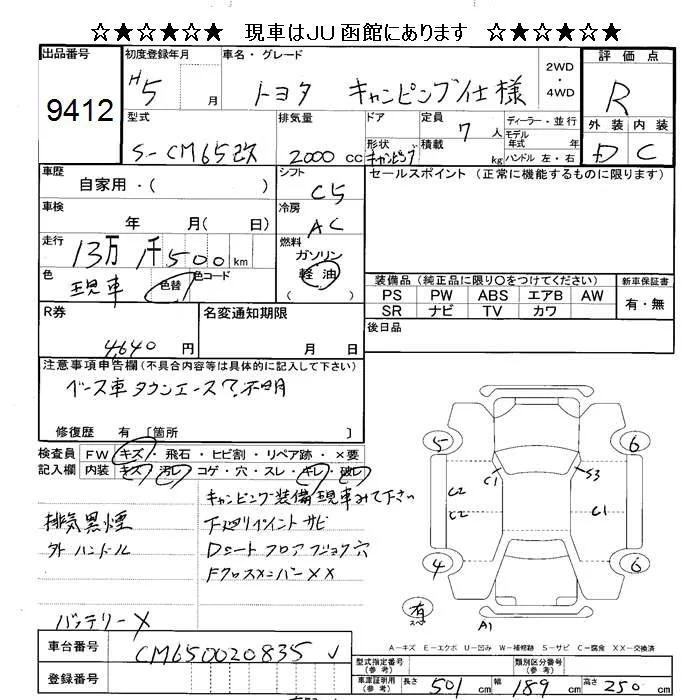 ☆★☆★☆★ 現車はJU函館にあります ☆★☆★☆★
出品番号
9412
初度登録年月
H5 月
車名・グレード
トヨタ キャンピング仕様
2WD
・
4WD
評価点
R
外装 内装
D C
型式
S-CM65改
排気量
2000 cc
ドア
形状
キャンピング
定員
7 人
積載
kg
ディーラー・並行
モデル
年式 年
ハンドル 左・右
車歴
自家用・( )
シフト
C5
車検
年 月( 日)
冷房
AC
走行
13万1千500 km
燃料
ガソリン
軽油
( )
色
現車
色替
色コード
R券
4,640 円
名変通知期限
月 日
セールスポイント(正常に機能するものに限ります)
装備品(純正品に限り○をつけてください)
PS PW ABS エアB AW
SR ナビ TV カワ
新車保証書
有・無
後日品
注意事項申告欄(不具合内容等は具体的に記入して下さい)
ベース車タウンエース?不明
修復歴 有 [箇所 ]
検査員
記入欄
FW キズ・飛石・ヒビ割・リペア跡・×要
内装 キズ・汚レ・コゲ・穴・スレ・キレ・破レ
キャンピング装備現車みて下さい
排気黒煙
下廻りペイントサビ
外ハンドル
Dシートフロアフショク穴
Fクロスメンバー××
バッテリー×
5 6
C1 S3
C2
C2 C1
4 6
有
スペ
A1
A-キズ E-エクボ U-凹み W-補修跡 S-サビ C-腐食 XX-交換済
車台番号
CM650020835
登録番号
型式指定番号
(参考)
類別区分番号
(参考)
車庫証明用
(参考)
長さ 501 cm 幅 189 cm 高さ 250 cm